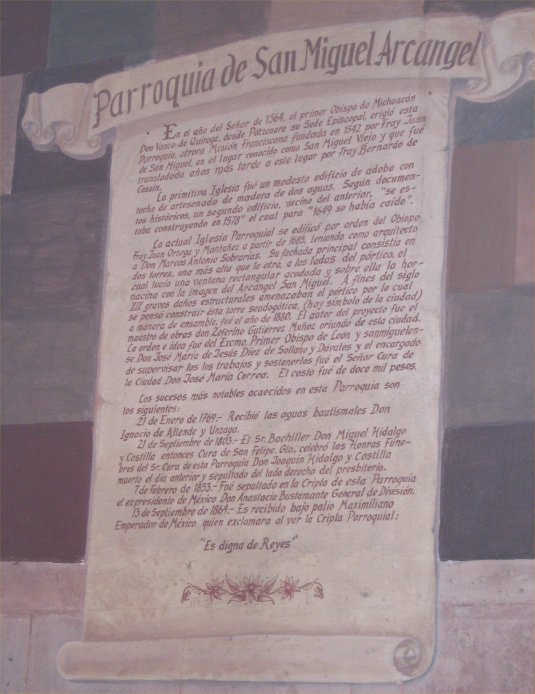 Parroquia de San Miguel Arcangel
En el año del Señor de 1564, el primer Obispo de Michoacán
Don Vasco de Quiroga, desde Pátzcuaro su Sede, erigió esta
Parroquia, otrora Misión Franciscana fundada en 1542 por Fray Juan
de San Miguel, en el lugar conocido como San Miguel Viejo y que fué
transladada años más tarde a este lugar por Fray Bernardo de
Cossin.
La primitiva Iglesia fué un modesto edificio de adobe con
techo de artesonado de madera de dos aguas. Según documen-
tos históricos, un segundo edificio, vecino del anterior, "se es-
taba construyendo en 1578" el cual para "1649 se había caído".
La actual Iglesia Parroquial se edificó por orden del Obispo
Fray Juan Ortega y Montañez a partir de 1683, teniendo como arquitecto
a Don Marcos Antonio Sobrarías. Su fachada principal consistía en
dos torres, una más alta que la otra, a los lados del pórtico, el
cual lucía una ventana rectangular acodada y sobre ella la hor-
nacina con la imagen del Arcángel San Miguel. A fines del siglo
XIX graves daños estructurales amenazaban el pórtico por lo cual
se pensó construir ésta torre seudogótica, (hoy símbolo de la ciudad)
a manera de ensamble, fué el año de 1880. El autor del proyecto fue el
maestro de obras don Zeferino Gutiérrez Muñoz oriundo de esta ciudad.
La orden e idea fué del Excmo. Primer Obispo de León y sanmiguelen-
se Don José María de Jesús Diez de Sollano y Dávalos y el encargado
de supervisar los los trabajos y sostenerlos fué el Señor Cura de
la Ciudad Don José María Correa. El costo fué de doce mil pesos.
Los sucesos más notables acaecidos en esta Parroquia son
los siguientes:
21 de Enero de 1769.- Recibió las aguas bautismales Don
Ignacio de Allende y Unzaga.
21 de Septiembre de 1803.- El Sr. Bachiller Don Miguel Hidalgo
y Costilla entonces Cura de San Felipe, Gto. celebró las Honras Fúne-
bres del Sr. Cura de esta Parroquia Don Joaquín Hidalgo y Costilla
muerto el día anterior y sepultado del lado derecho del presbiterio.
7 de Febrero de 1853.- Fué sepultado en la Cripta de esta Parroquia
el expresidente de México Don Anastacio Bustamante General de División.
13 de Septiembre de 1864.- Es recibido bajo palio Maximiliano
Emperador de México quien exclamara al ver la Cripta Parroquial:
"Es digna de Reyes"